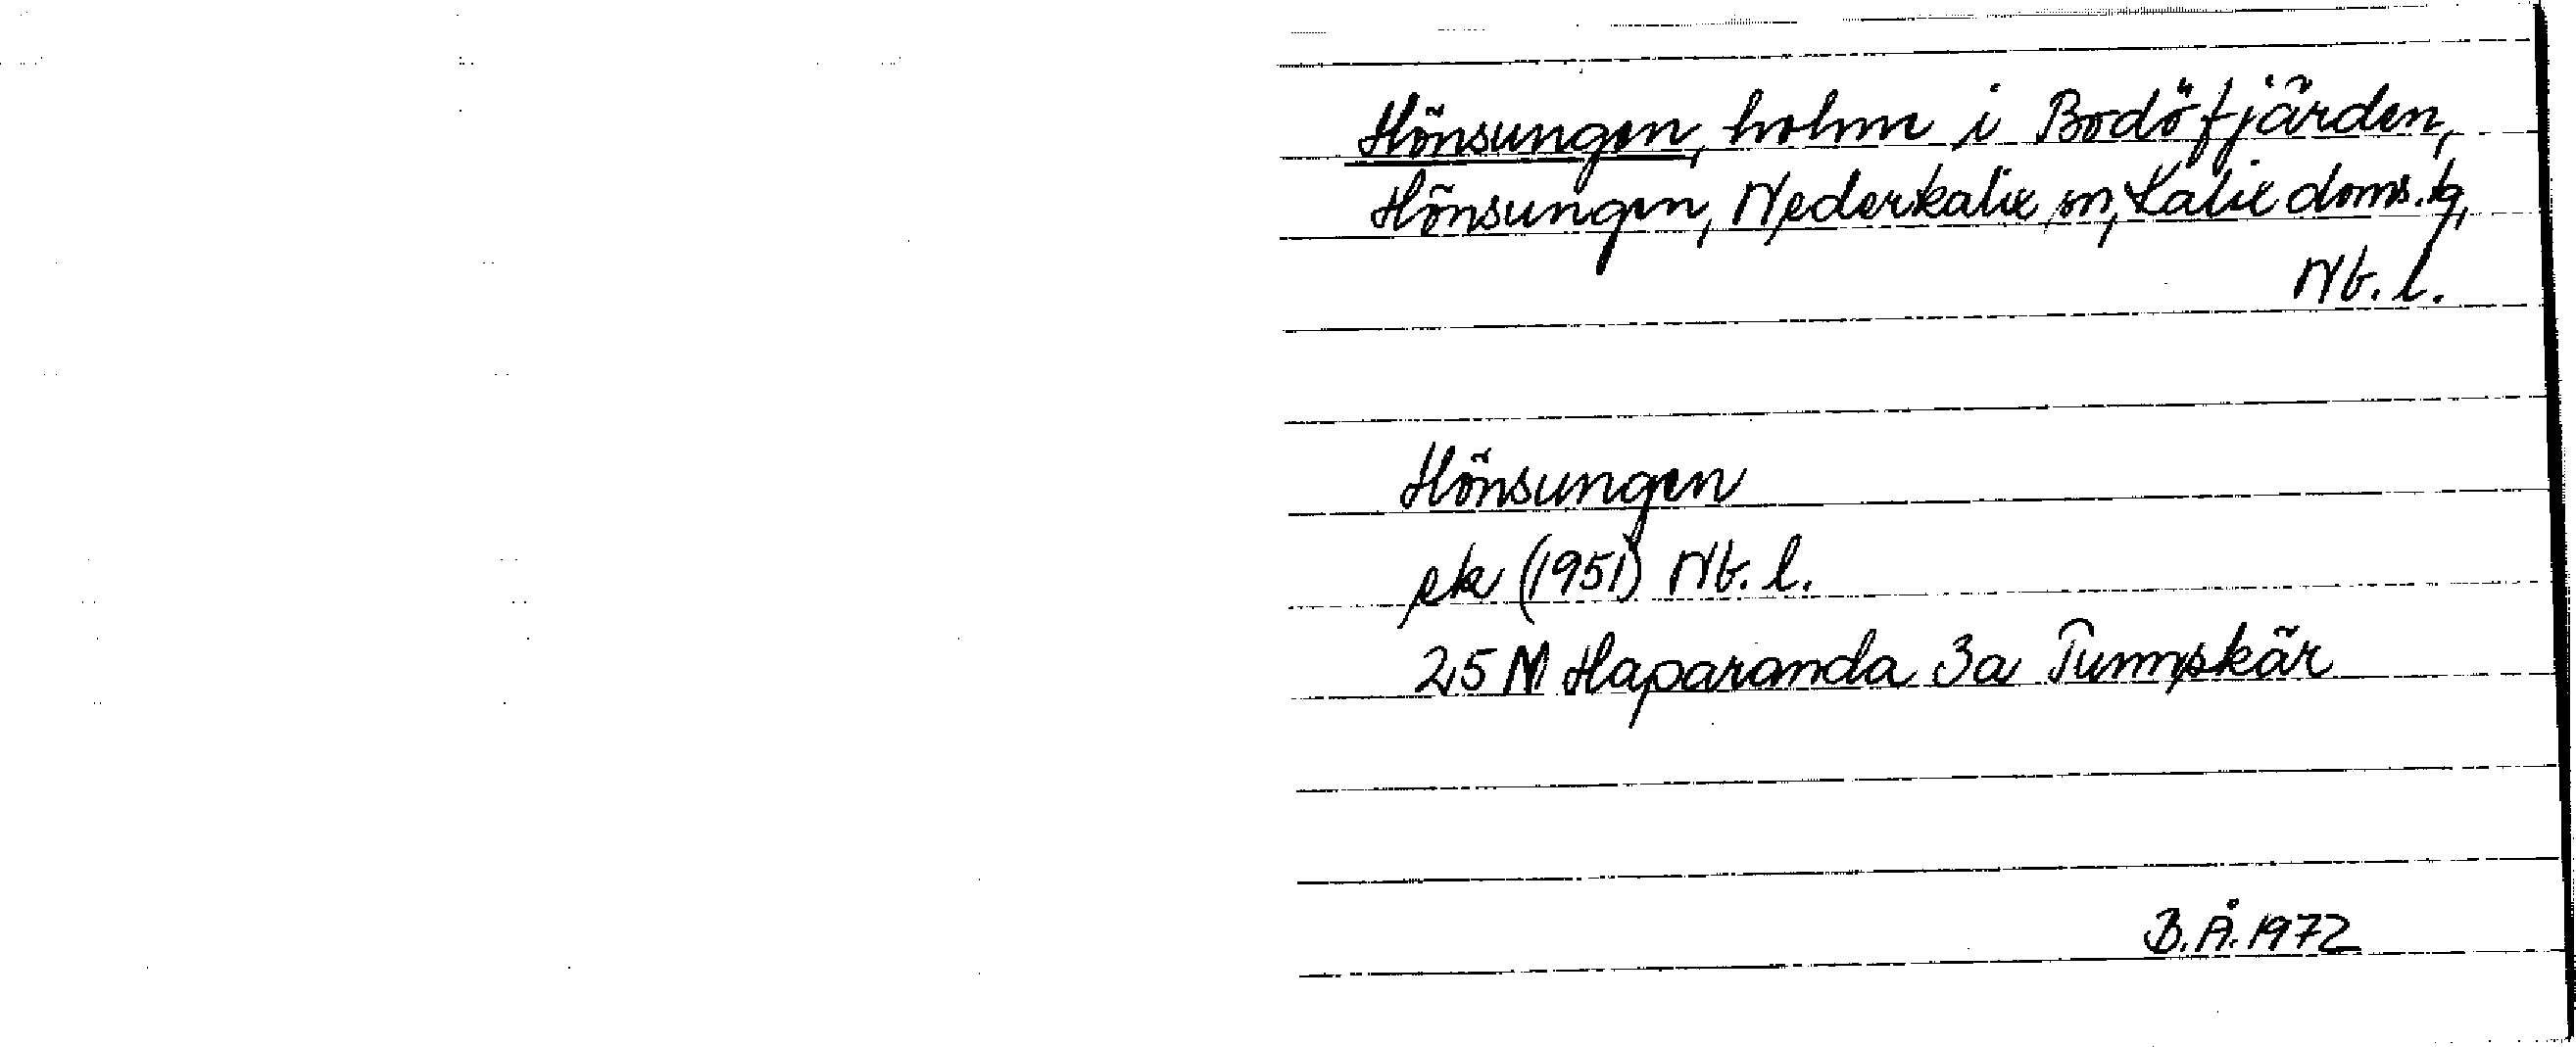 Hönsungen, holm i Bodöfjärden,
Hönsungen, Nederkalix sn, Kalix doms.g,
Nb. l.
Hönsungen
ek (1951) Nb. l.
25 M Haparanda 3a Tumpskär
B.Å. 1972